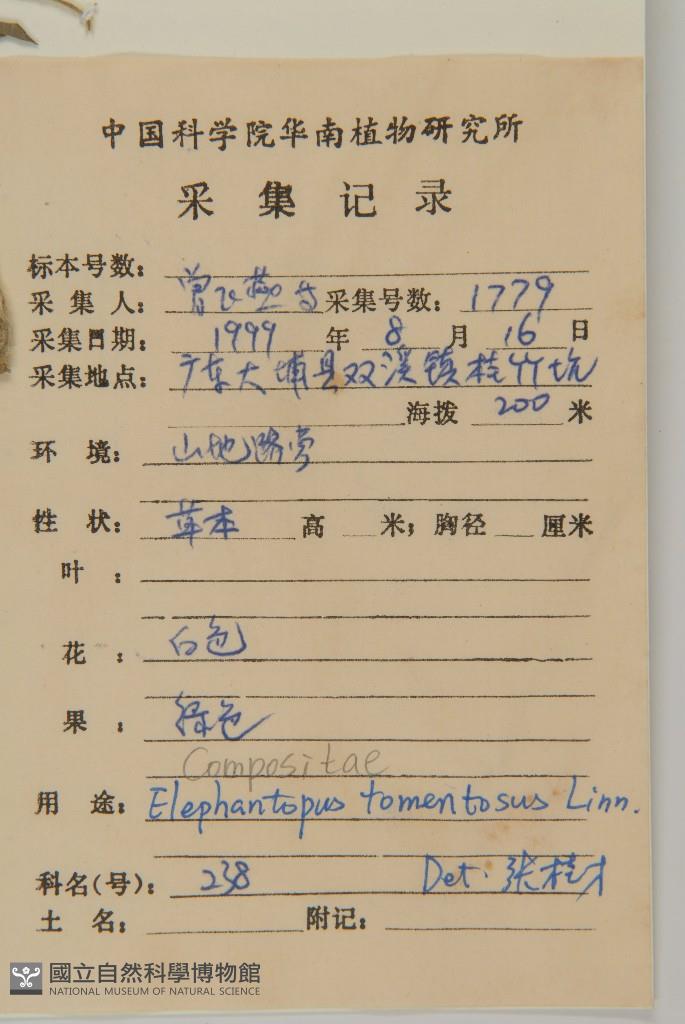 中国科学院华南植物研究所
采集记录
标本号数：
采集人：曾飞燕 等 采集号数：1779
采集日期：1999 年 8 月 16 日
采集地点：广东大埔县双溪镇桂竹坑
海拨 200 米
环境：山地路旁
性状：草本 高 米；胸径 厘米
叶：
花：白色
果：绿色
Compositae
用途：Elephantopus tomentosus Linn.
科名（号）：238 Det. 张桂才
土名： 附记：
國立自然科學博物館
NATIONAL MUSEUM OF NATURAL SCIENCE